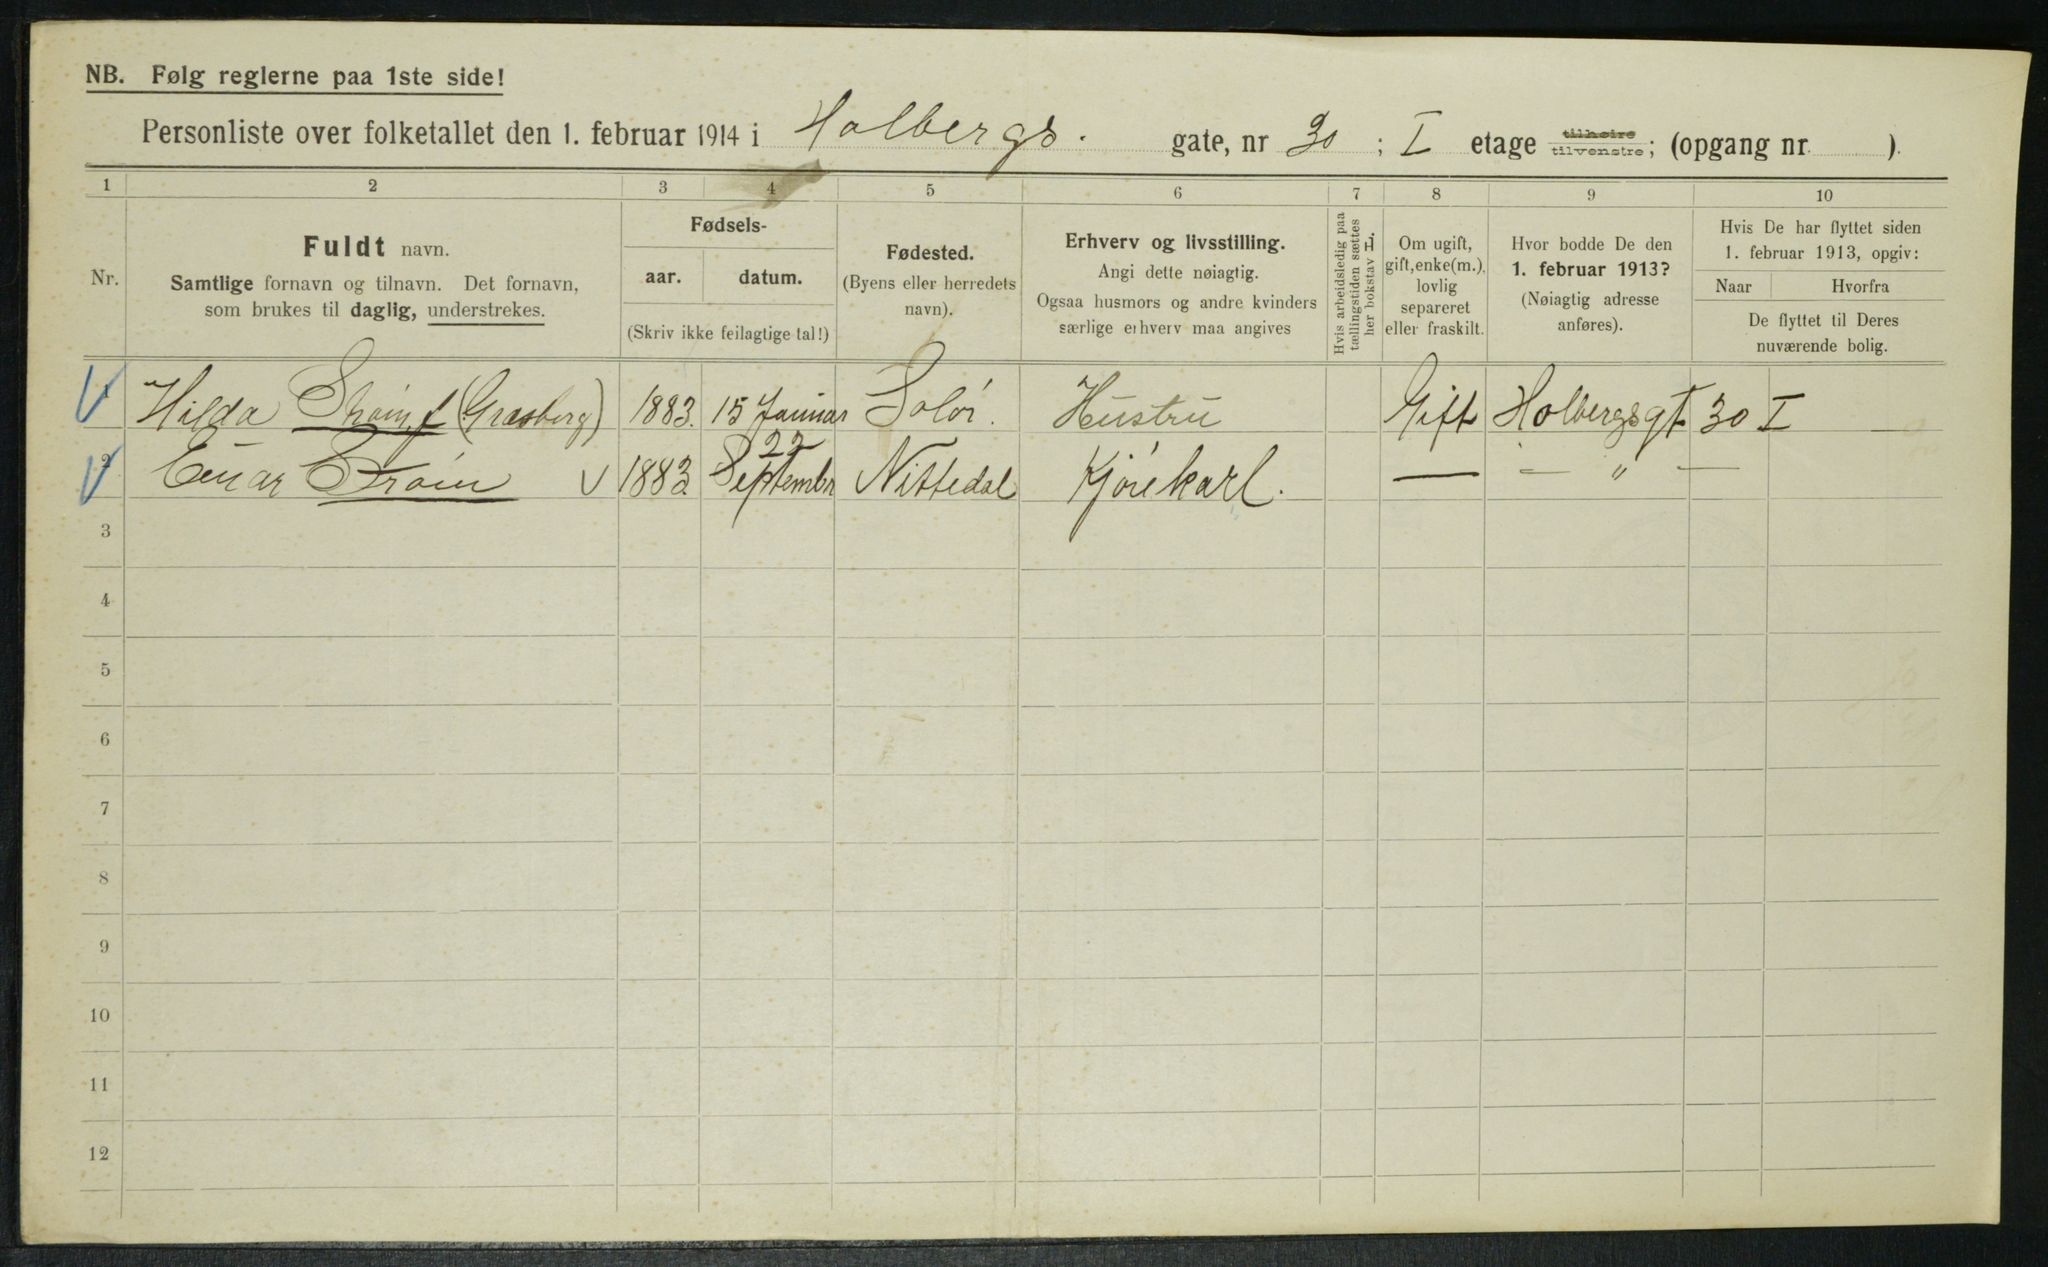 NB. Følg reglerne paa 1ste side!
Personliste over folketallet den 1. februar 1914 i Holbergs. gate, nr 30; I etage tilhøire tilvenstre; (opgang nr. ).
1 2 3 4 5 6 7 8 9 10
Nr.
Fuldt navn.
Samtlige fornavn og tilnavn. Det fornavn,
som brukes til daglig, understrekes.
Fødsels-
aar. datum.
(Skriv ikke feilagtige tal!)
Fødested.
(Byens eller herredets
navn).
Erhverv og livsstilling.
Angi dette nøiagtig.
Ogsaa husmors og andre kvinders
særlige erhverv maa angives
Hvis arbeidsledig paa
tællingstiden sættes
her bokstav L.
Om ugift,
gift, enke(m.),
lovlig
separeret
eller fraskilt.
Hvor bodde De den
1. februar 1913?
(Nøiagtig adresse
anføres).
Hvis De har flyttet siden
1. februar 1913, opgiv:
Naar Hvorfra
De flyttet til Deres
nuværende bolig.
1 Hilda f (Græsberg) 1883. 15 Januar Solør. Hustru Gift Holbergsgt 30 I
2 Einar 1883. 22 September Nittedal Kjørekarl. — — „ —
3
4
5
6
7
8
9
10
11
12